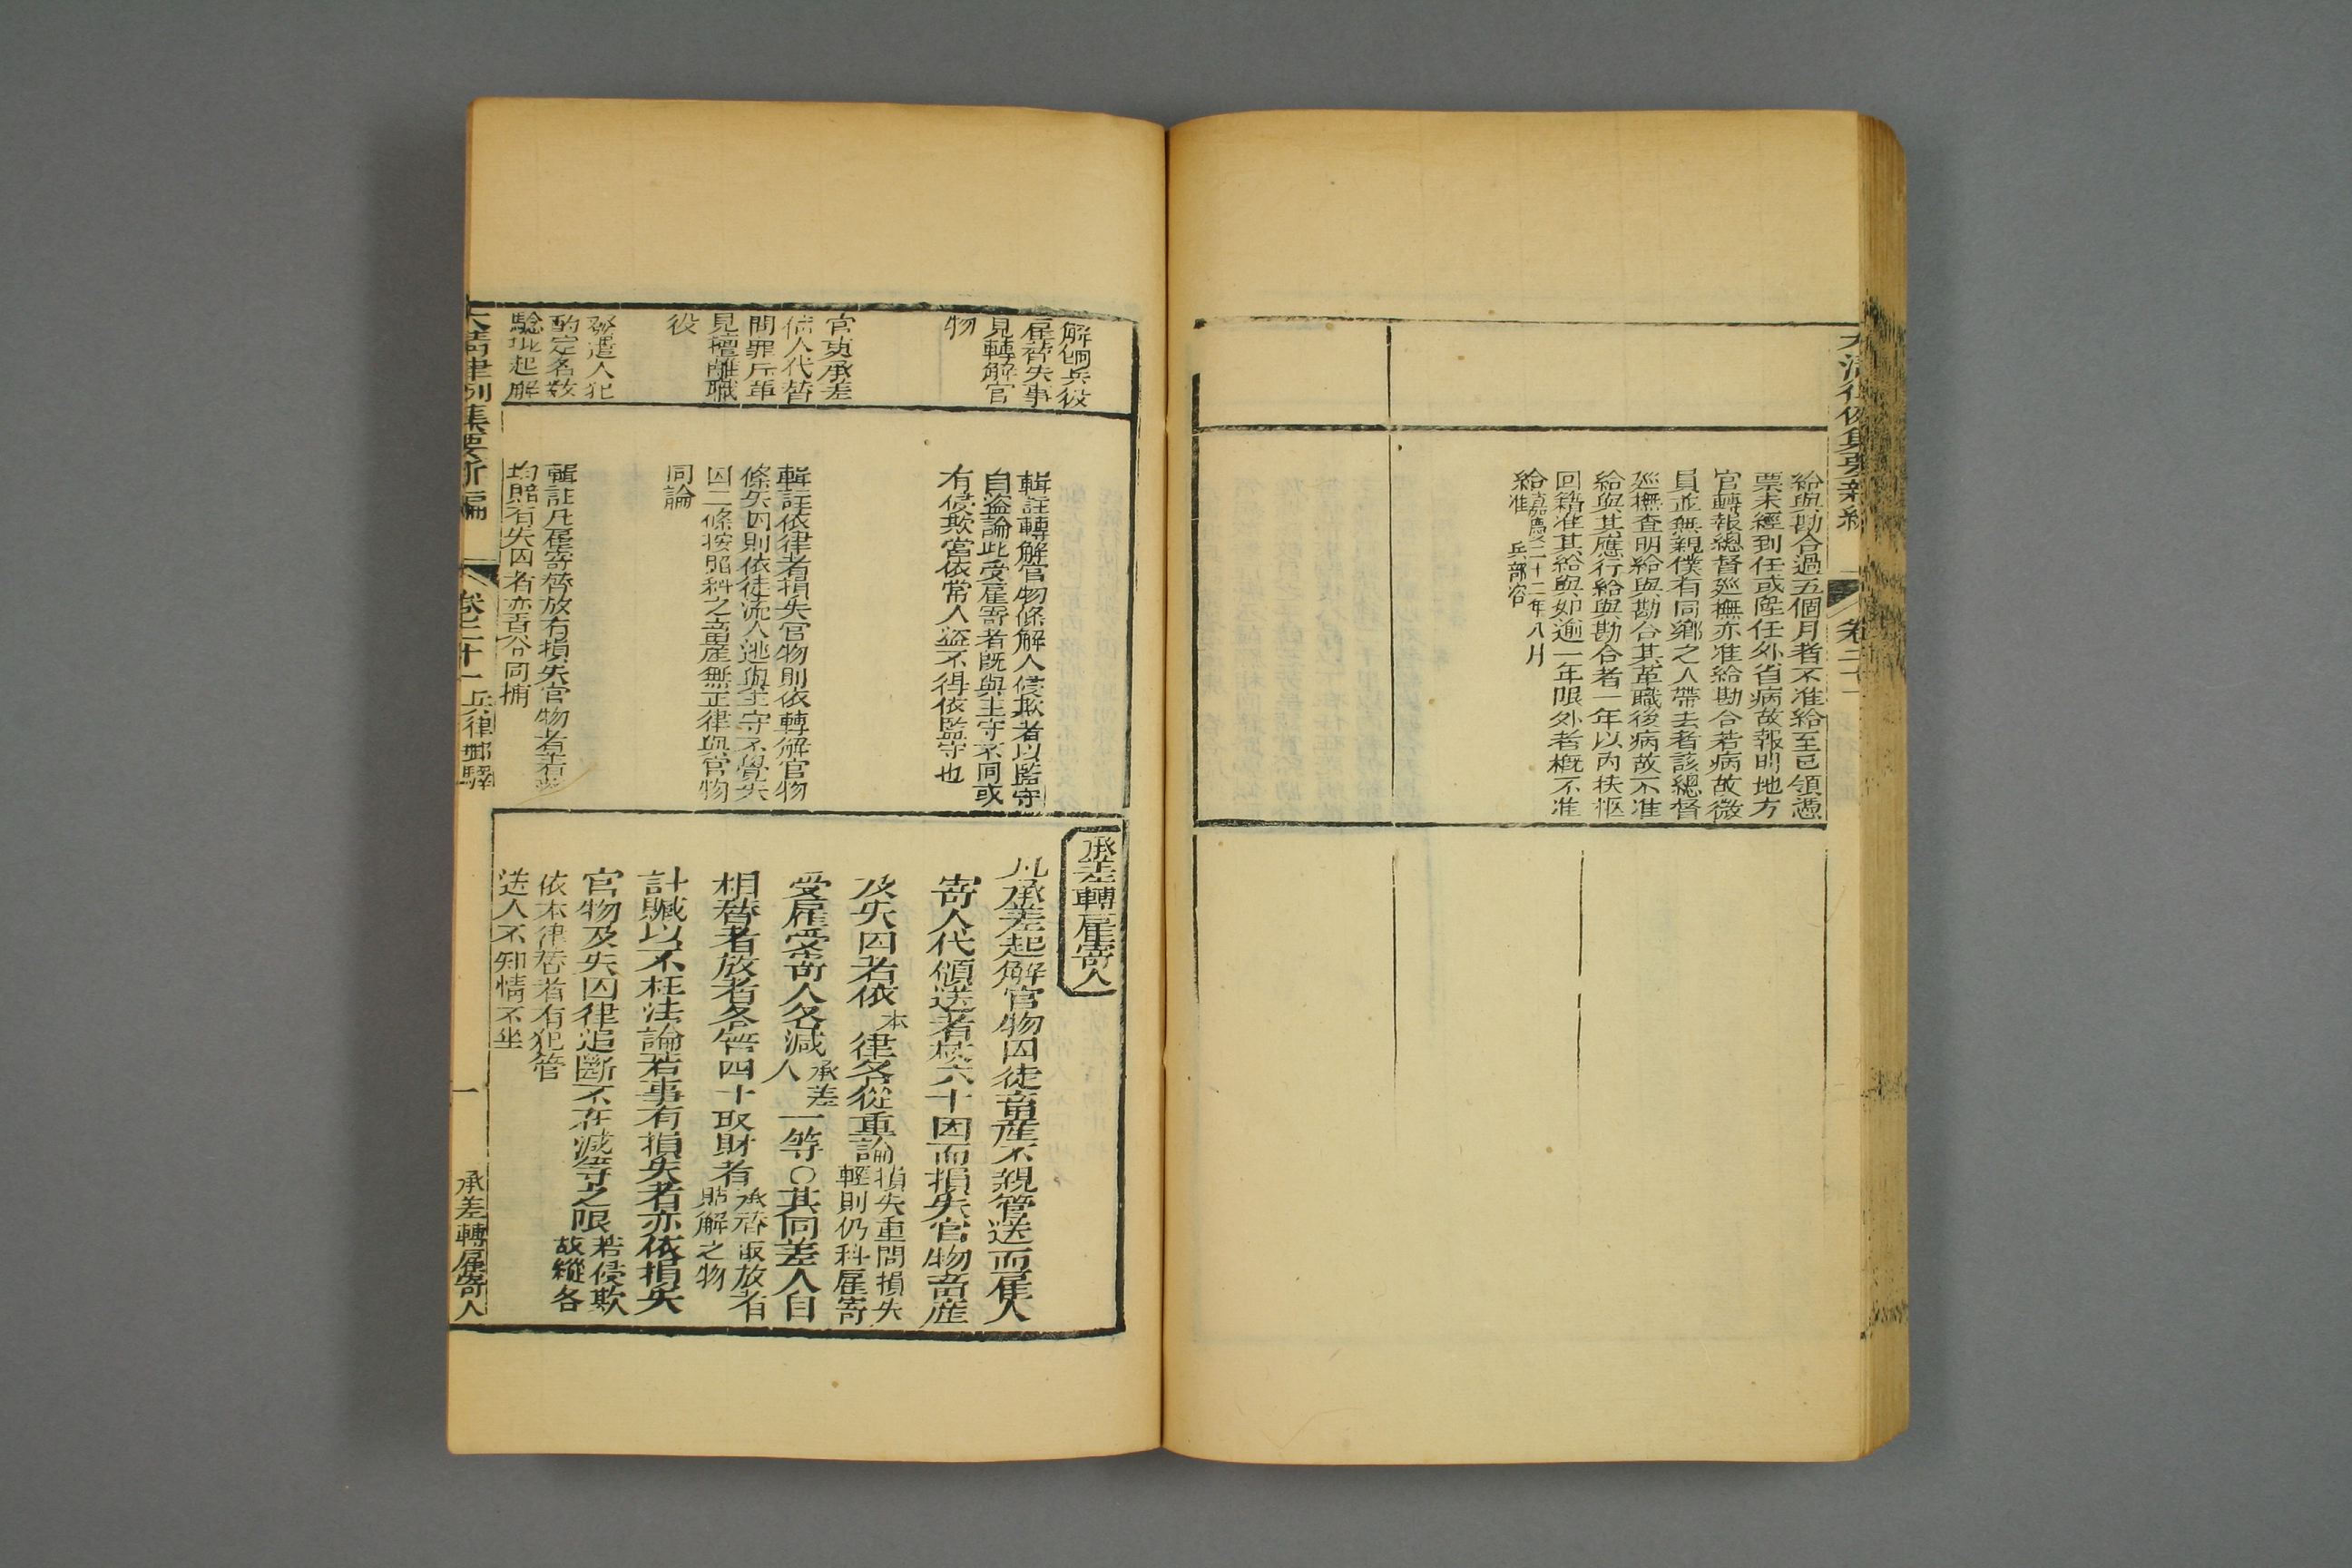 大清律例集要新編
卷二十一
給與勘合過五個月者不准給至已領憑
票未經到任或陞任外省病故報明地方
官轉報總督廵撫亦准給勘合若病故微
員並無親僕有同鄉之人帶去者該總督
廵撫查明給與勘合其革職後病故不准
給與其應行給與勘合者一年以內扶柩
回籍准其給與如逾一年限外者概不准
給嘉慶二十二年八月
准兵部咨
解餉兵役
雇替失事
見轉解官
物
官吏承差
倩人代替
問罪斥革
見擅離職
役
發遣人犯
酌定名數
驗批起解
輯註轉解官物條解人侵欺者以監守
自盜論此受雇寄者既與主守不同或
有侵欺當依常人盜不得依監守也
輯註依律者損失官物則依轉解官物
條失囚則依徒流人逃與主守不覺失
囚二條按照科之畜產無正律與官物
同論
輯註凡雇寄替放有損失官物者着落
均賠有失囚者亦責令同捕
承差轉雇寄人
凡承差起解官物囚徒畜產不親管送而雇人
寄人代領送者杖六十因而損失官物畜產
及失囚者依本律各從重論損失重問損失
輕則仍科雇寄
受雇受寄人各減承差
人一等○其同差人自
相替者放者各笞四十取財者承替取放者
貼解之物
計贓以不枉法論若事有損失者亦依損失
官物及失囚律追斷不在減等之限若侵欺
故縱各
依本律替者有犯管
送人不知情不坐
大清律例集要新編
卷二十一
兵律郵驛
一
承差轉雇寄人